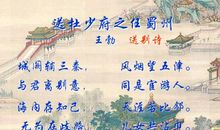 送杜少府之任蜀州
王勃 送别诗
城阙辅三秦， 风烟望五津。
与君离别意， 同是宦游人。
海内存知己， 天涯若比邻。
无为在歧路，